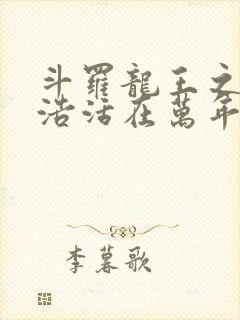 斗羅龍王之
浩活在萬年
李暮歌